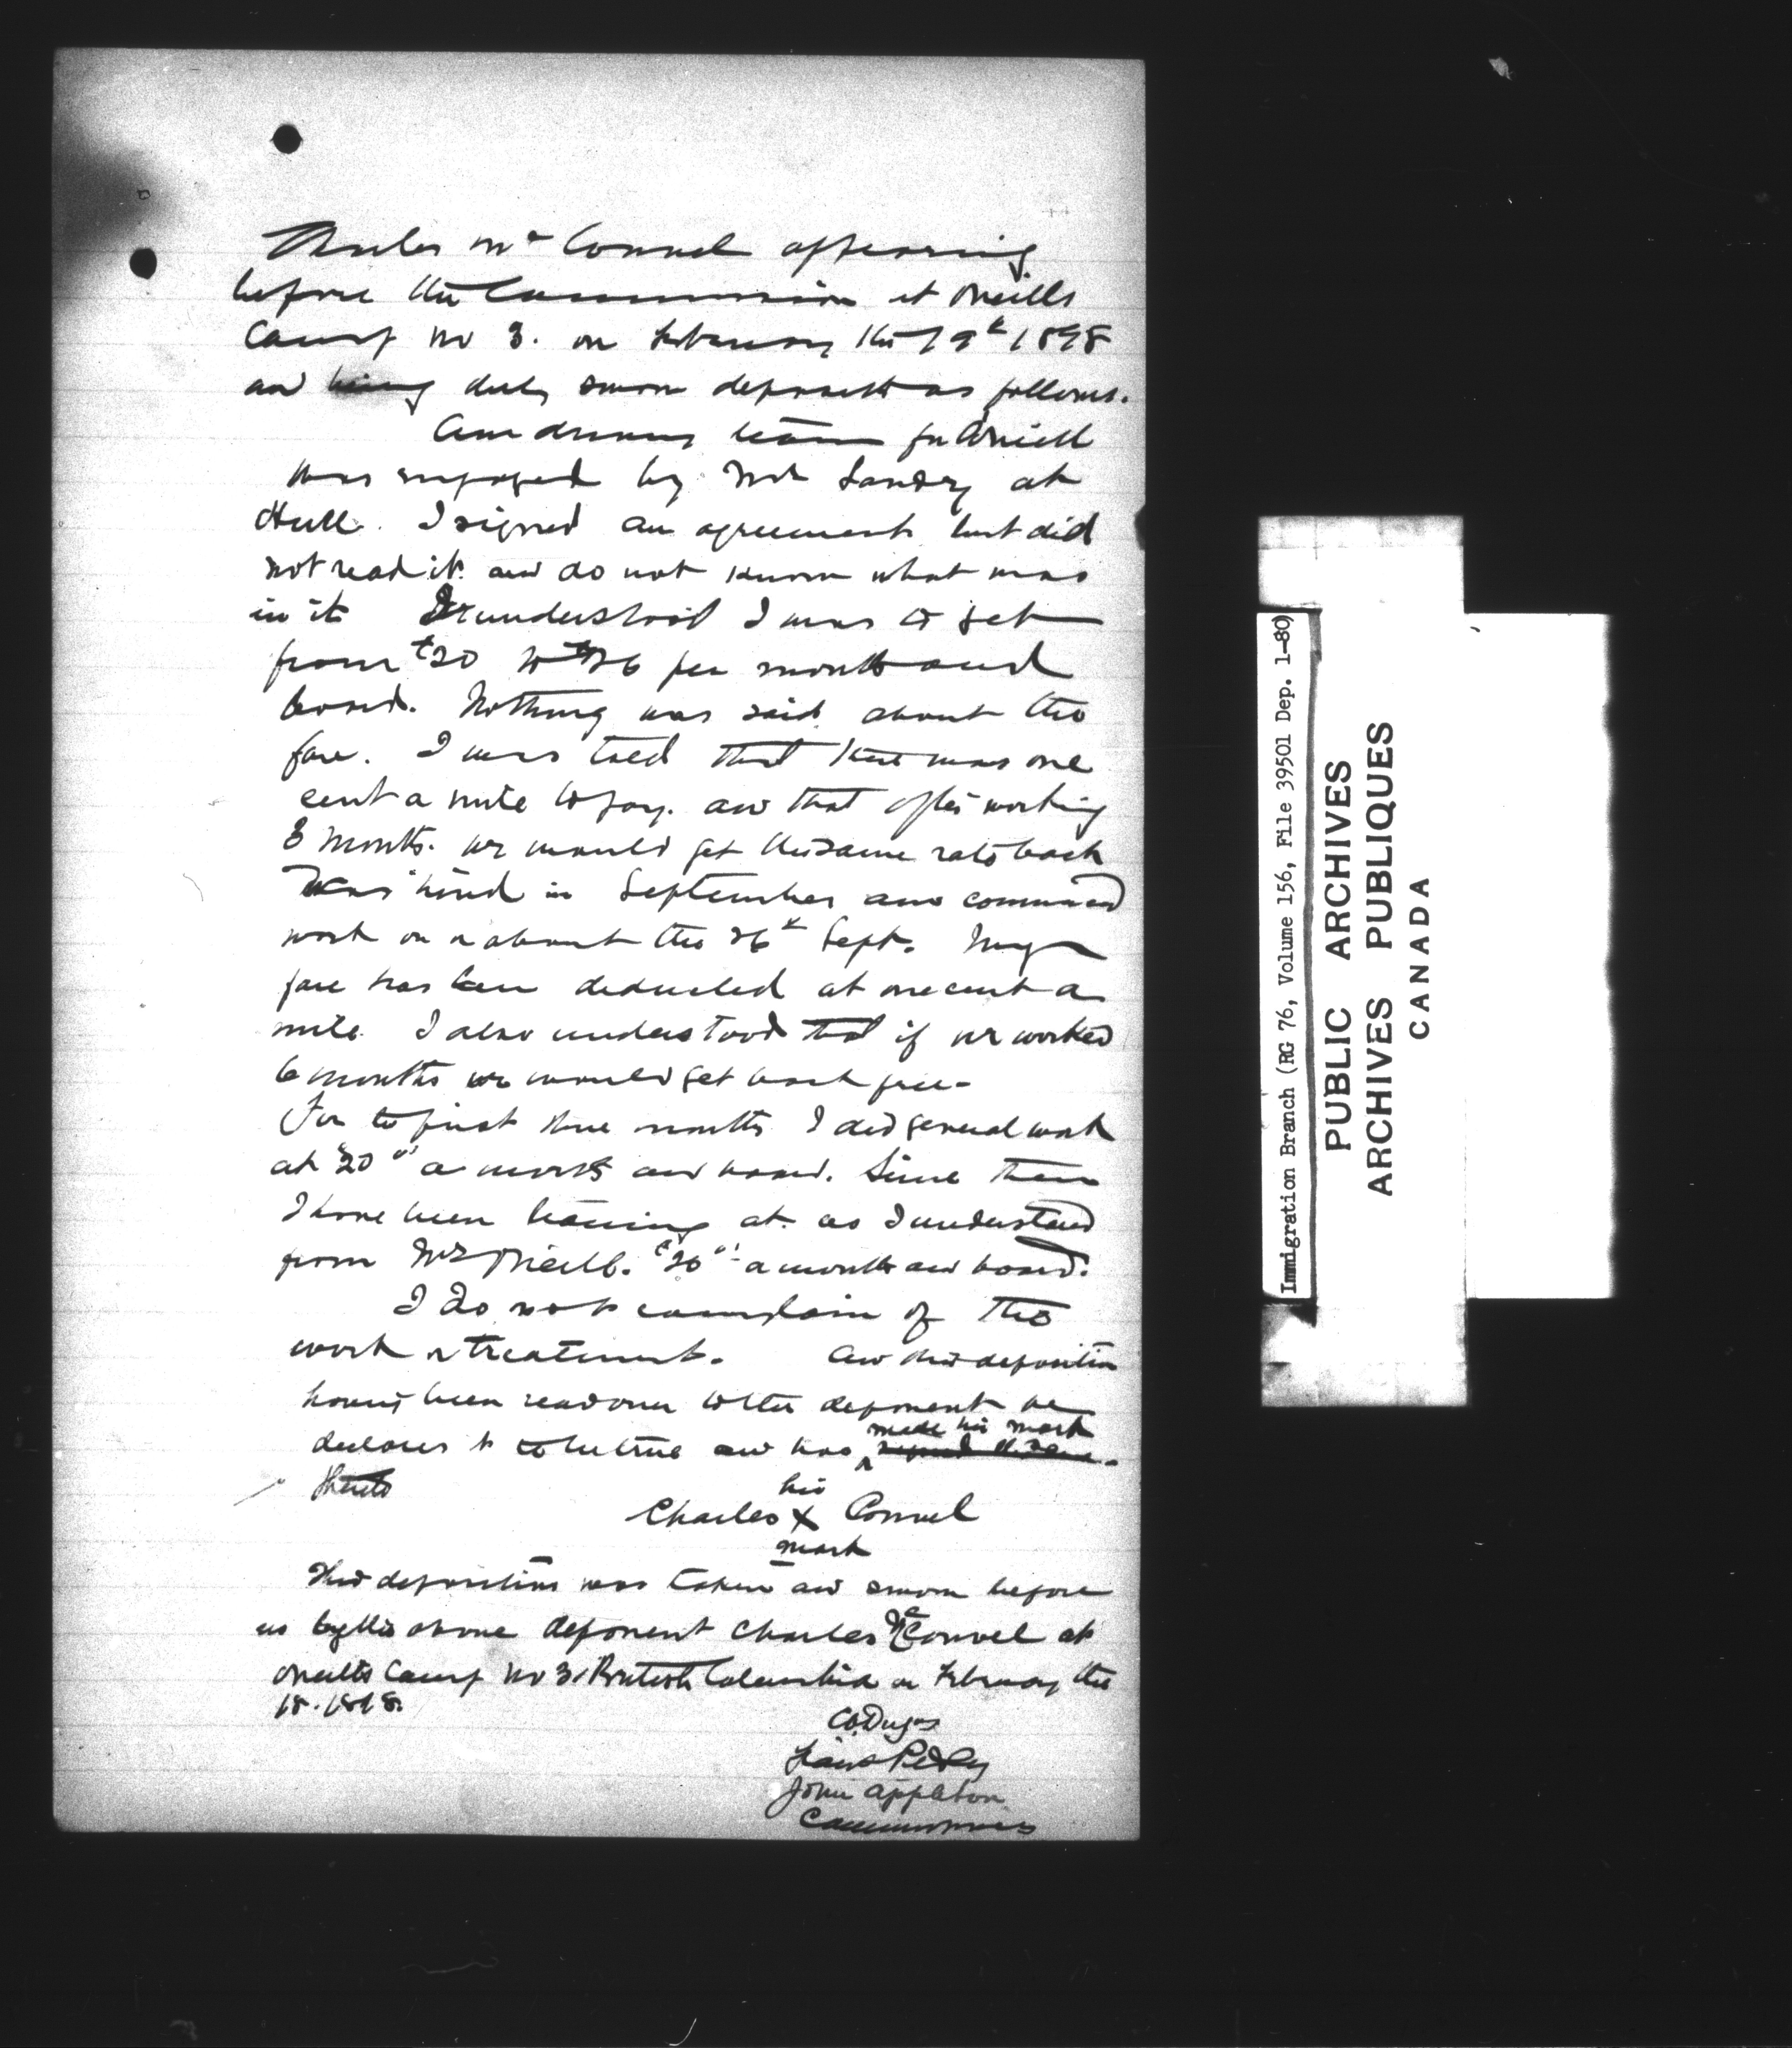 Charles Mc Connel appearing
before the Commission at Oneills
Camp No 3. on February the 19th 1898
and being duly sworn deposeth as follows.
Am driving team for Oneill
was engaged by Mr Landry at
Hull. I signed an agreement but did
not read it and do not know what was
in it I understood I was to get
from $20 to $26 per month and
board. Nothing was said about the
fare. I was told that there was one
cent a mile to pay. and that after working
3 months. we would get the same rate back
Was hired in September and commenced
work on or about the 26th Sept. My
fare has been deducted at one cent a
mile. I also understood that if we worked
6 months we would get back free-
For the first three months I did general work
at $20 00 a month and board. Since then
I have been teaming at as I understand
from Mr Oneill. $26 00 a month and board.
I do not complain of the
work or treatment. And this deposition
having been read over to the deponent he
declares it to be true and has made his mark
thereto
his
Charles X Connel
mark
This deposition was taken and sworn before
us by the above deponent Charles McConnel at
Oneills Camp No 3. British Columbia on February the
18. 1898.
C.A. Dugas
Frank Pedley
John Appleton
Commissioners
Immigration Branch (RG 76, Volume 156, File 39501 Dep. 1-80)
PUBLIC ARCHIVES
ARCHIVES PUBLIQUES
CANADA